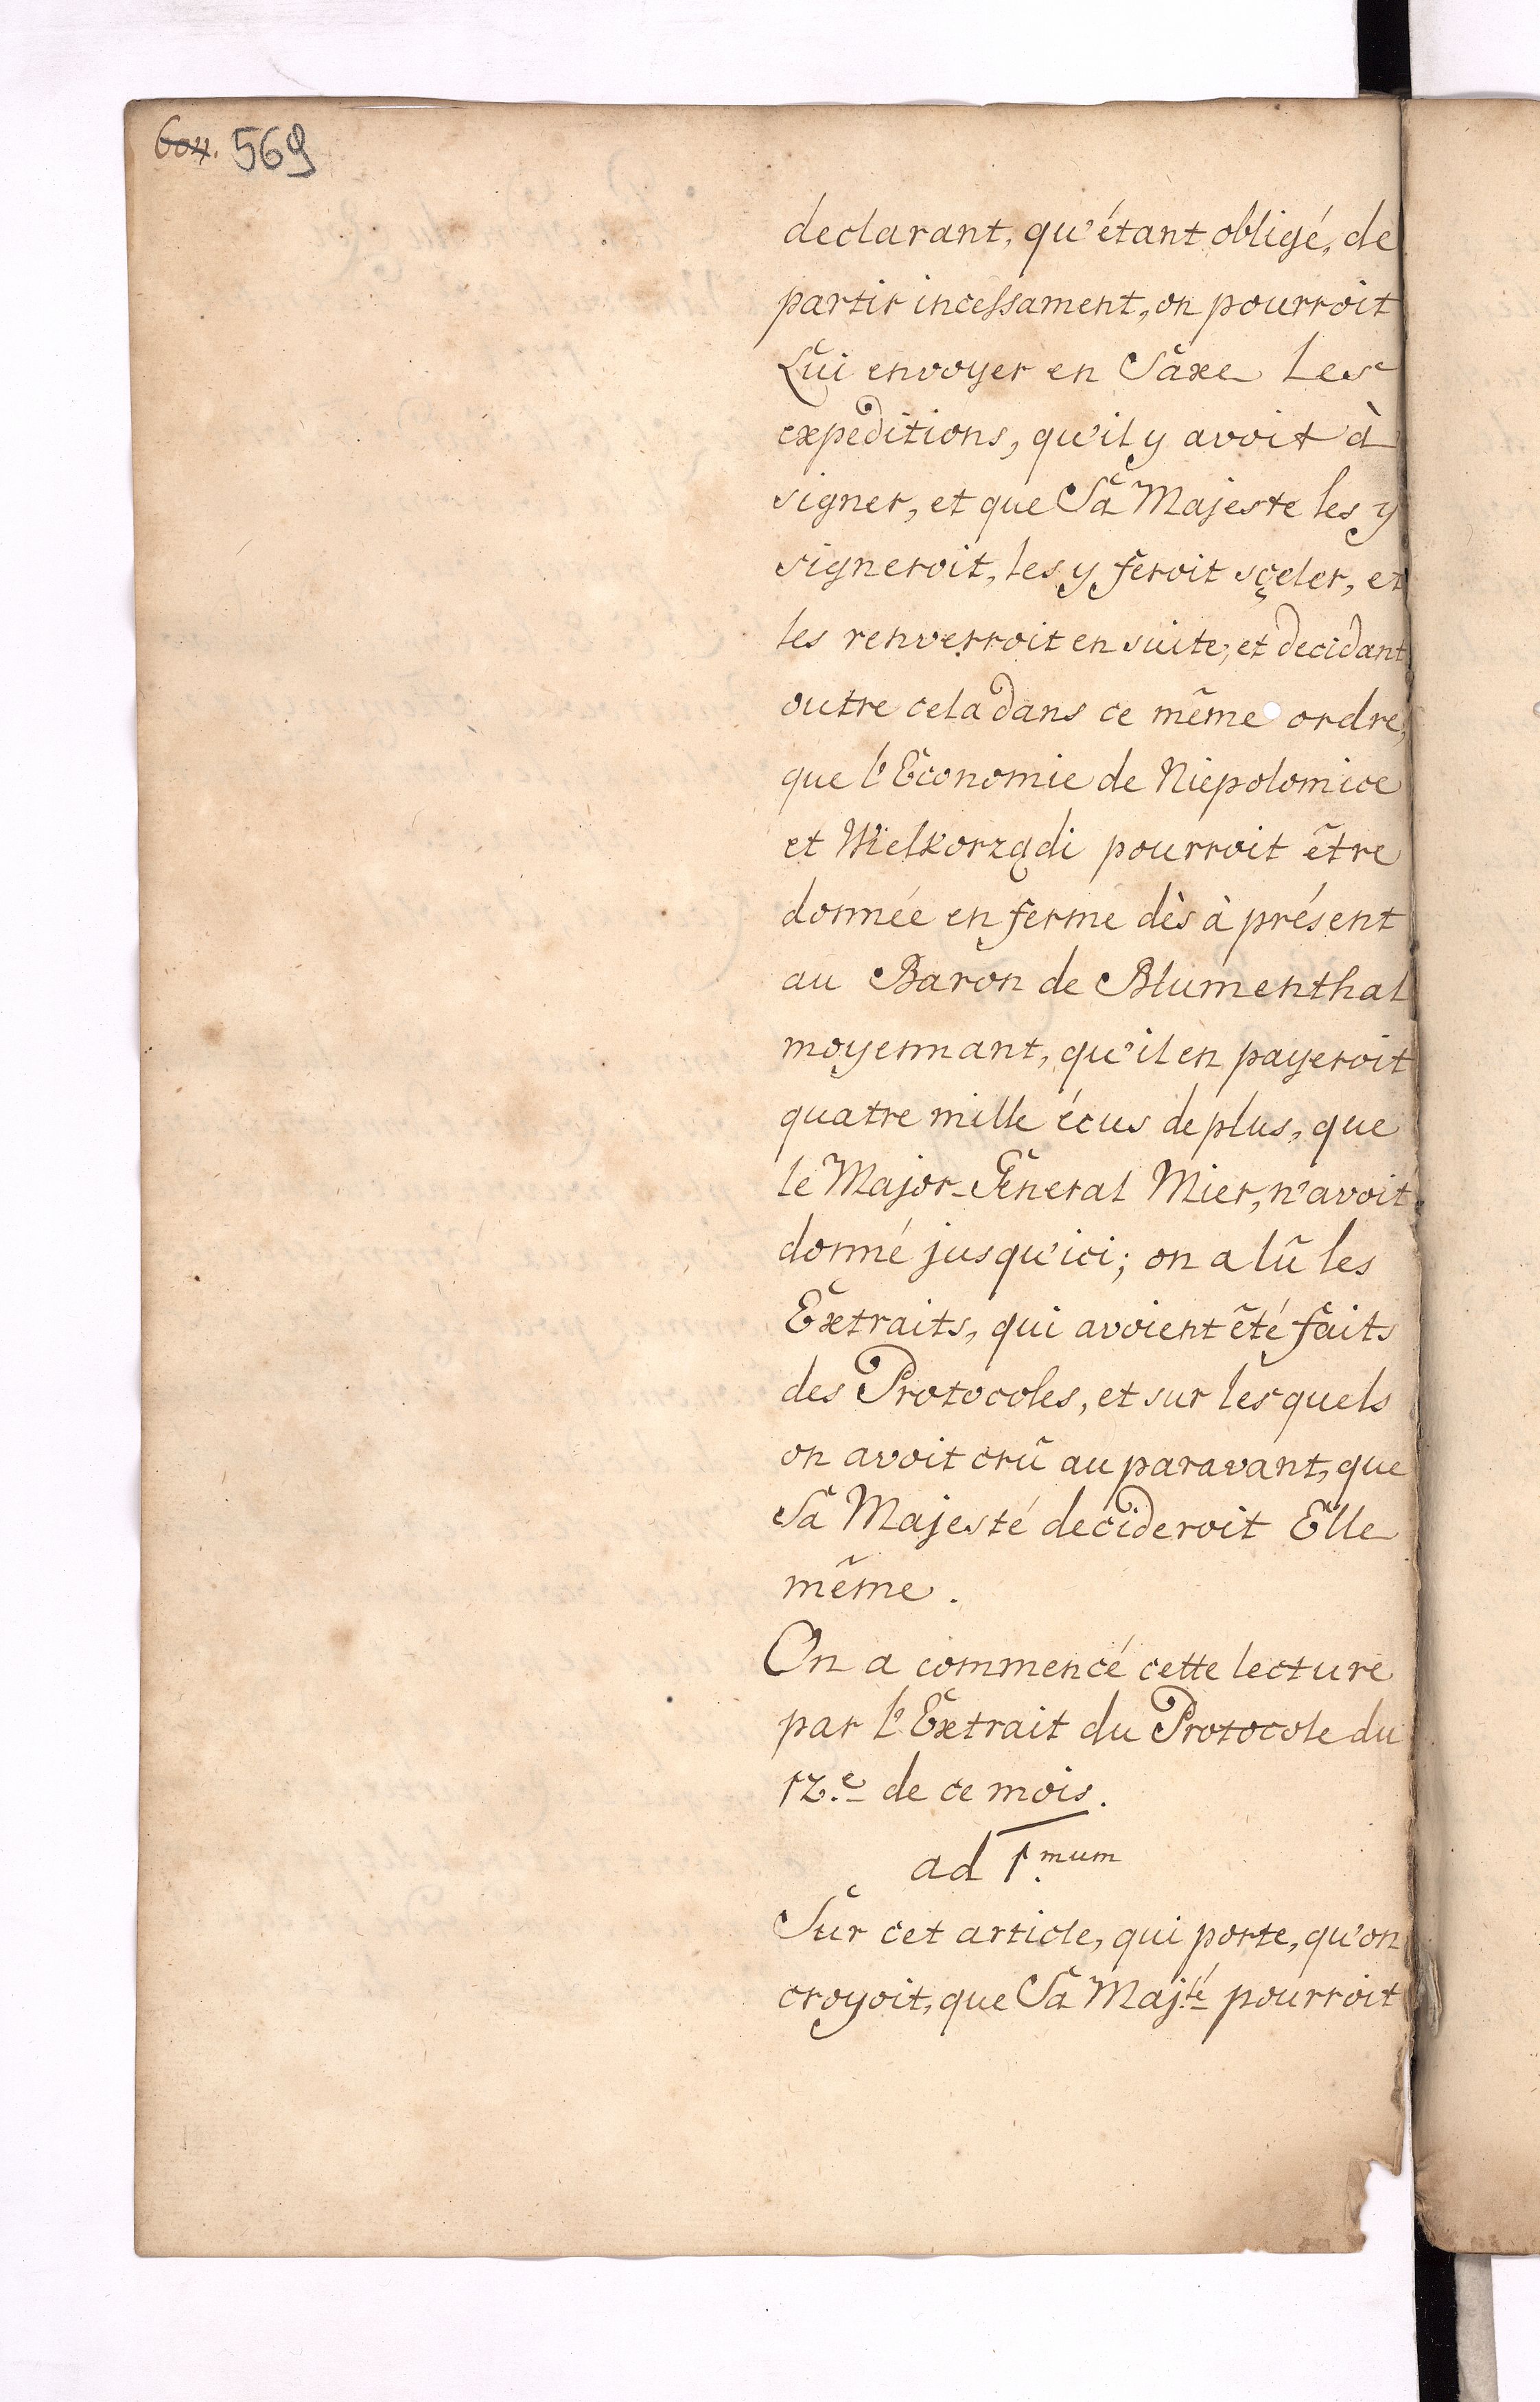 604. 569
declarant, qu'étant obligé, de
partir incessament, on pourroit
Lui envoyer en Saxe les
expeditions, qu'il y avoit à
signer, et que Sa Majeste les y
signeroit, les y feroit sçeler, et
les renverroit en suite; et decidant
outre cela dans ce même ordre,
que l'Economie de Niepolomice
et Wielkorządi pourroit être
donnée en ferme dès à présent
au Baron de Blumenthal
moyennant, qu'il en payeroit
quatre mille écus de plus, que
le Major-General Mier, n'avoit
donné jusqu'ici; on a lû les
Extraits, qui avoient êté faits
des Protocoles, et sur les quels
on avoit crû au paravant, que
Sa Majesté decideroit Elle
même.
On a commencé cette lecture
par l'Extrait du Protocole du
12.e de ce mois.
ad 1.mum
Sur cet article, qui porte, qu'on
croyoit, que Sa Maj.té pourroit